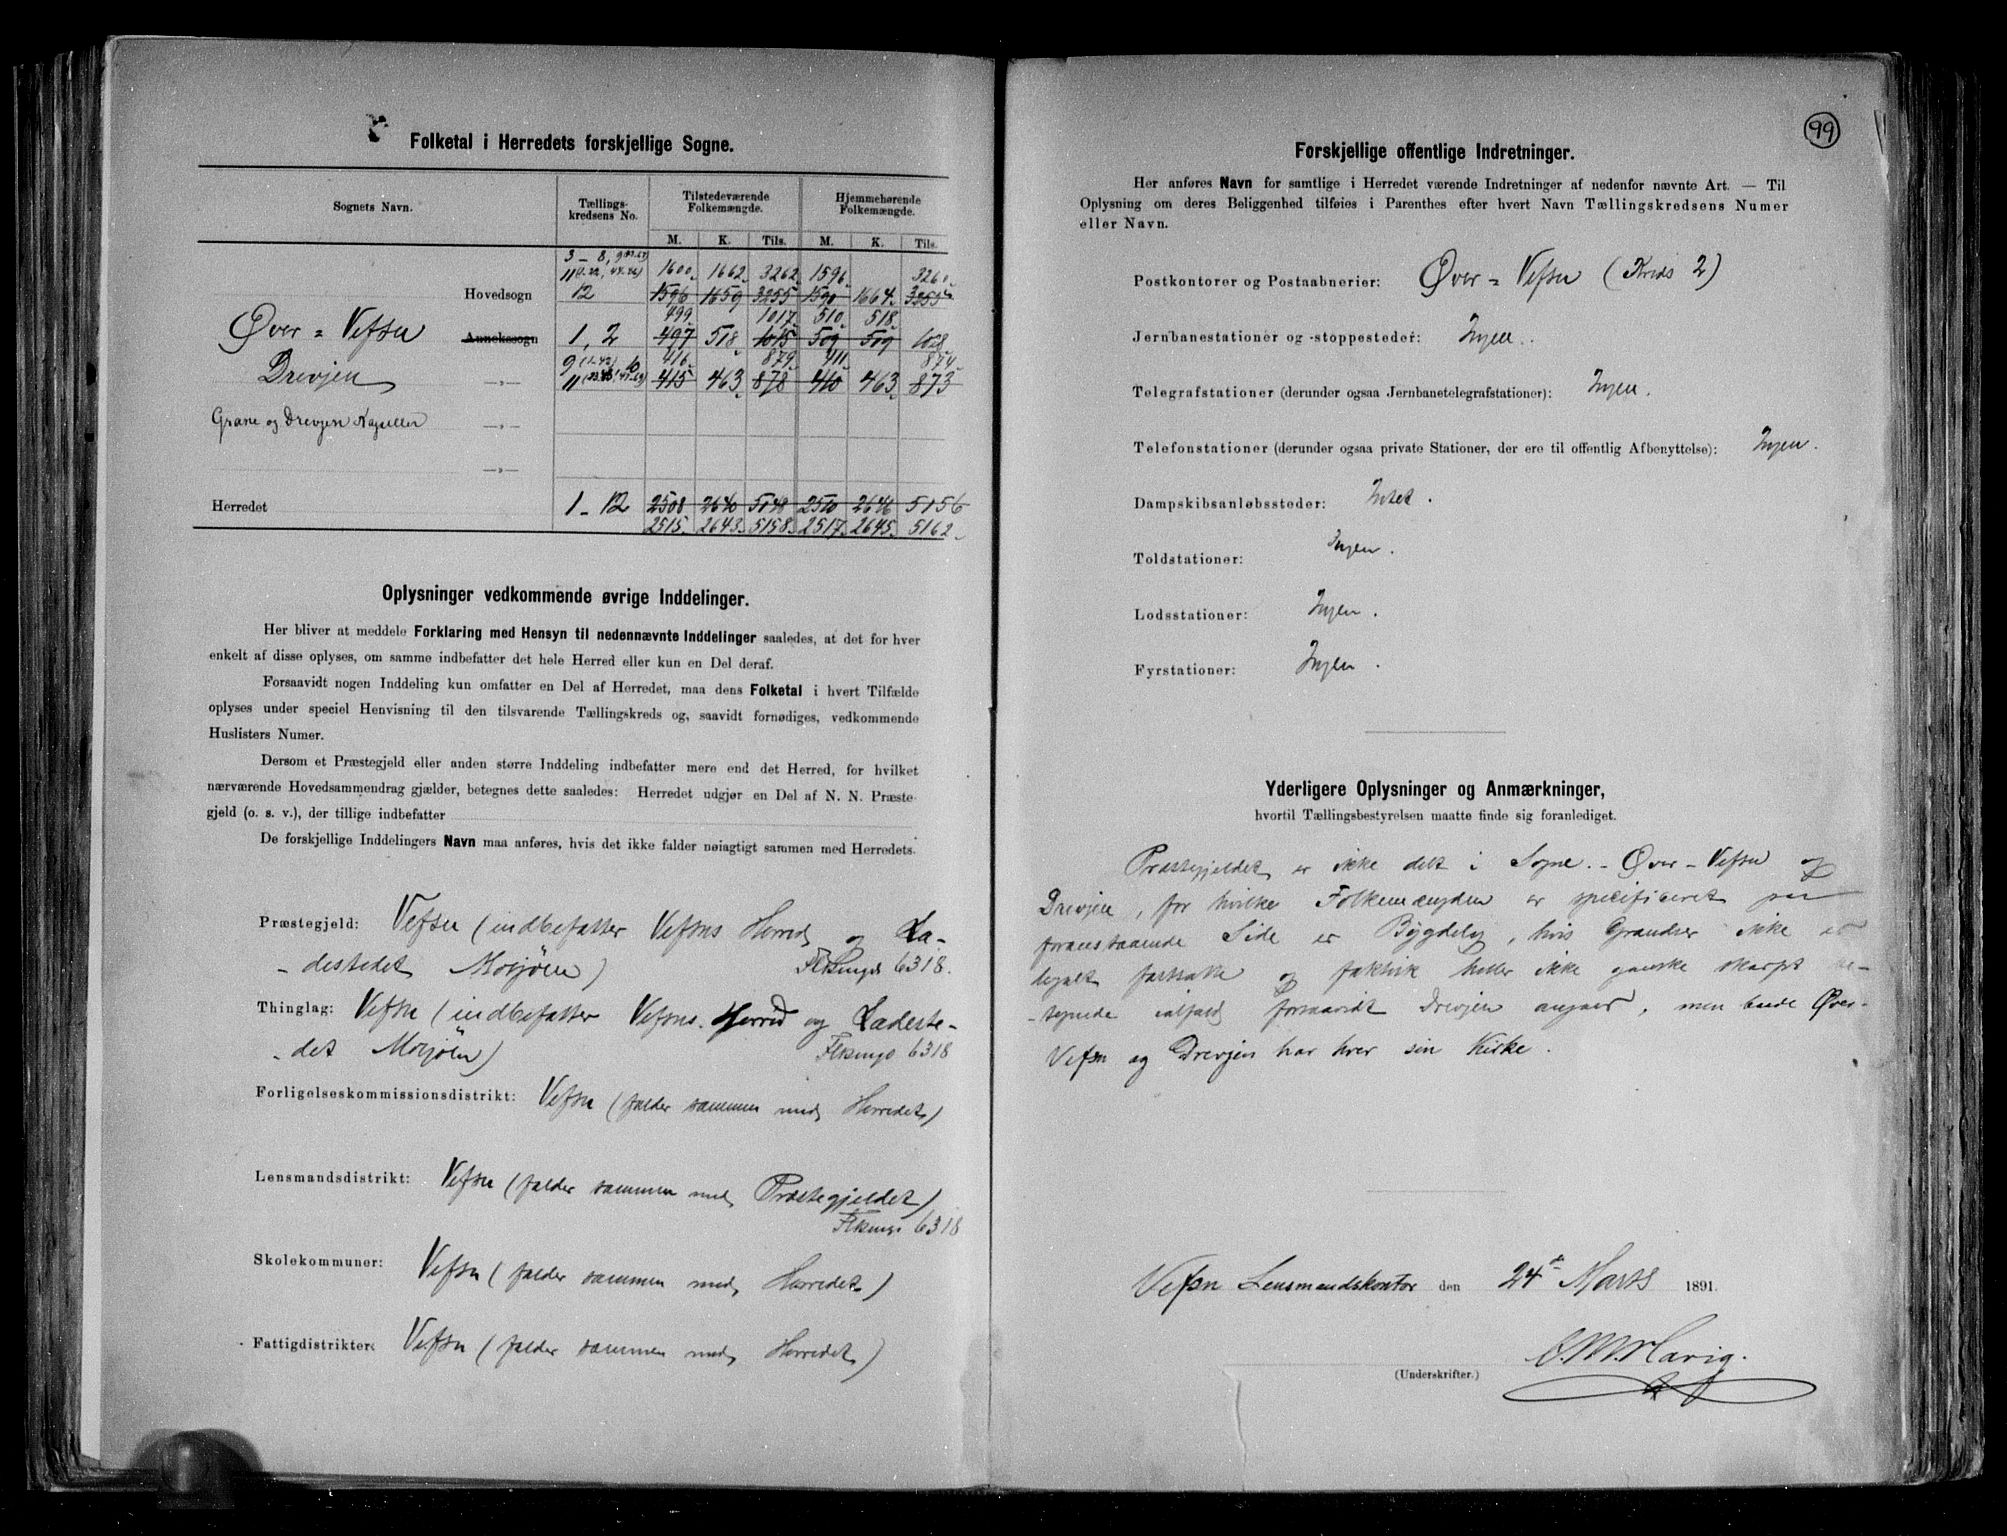 Folketal i Herredets forskjellige Sogne.
Sognets Navn.
Tællings-
kredsens No.
Tilstedeværende
Folkemængde.
Hjemmehørende
Folkemængde.
M. K. Tils. M. K. Tils.
3 - 8,
1600 1662 3262 1596 3260
Hovedsogn 12 1596 1659 3255 1590 1664 3255
499 1017 510 518
Øver = Vefsn Annekssogn 1, 2 497 518 1015 509 509 1028
416 879 411 874
Drevjen -„- 11 415 463 878 410 463 873
Grane og Drevjen Kapeller -„-
-„-
Herredet 1 - 12 2508 2640 5148 2510 2646 5156
2515 2643 5158 2517 2645 5162
Oplysninger vedkommende øvrige Inddelinger.
Her bliver at meddele Forklaring med Hensyn til nedennævnte Inddelinger saaledes, at det for hver
enkelt af disse oplyses, om samme indbefatter det hele Herred eller kun en Del deraf.
Forsaavidt nogen Inddeling kun omfatter en Del af Herredet, maa dens Folketal i hvert Tilfælde
oplyses under speciel Henvisning til den tilsvarende Tællingskreds og, saavidt fornødiges, vedkommende
Huslisters Numer.
Dersom et Præstegjeld eller anden større Inddeling indbefatter mere end det Herred, for hvilket
nærværende Hovedsammendrag gjælder, betegnes dette saaledes: Herredet udgjør en Del af N. N. Præste-
gjeld (o. s. v.), der tillige indbefatter
De forskjellige Inddelingers Navn maa anføres, hvis det ikke falder nøiagtigt sammen med Herredets.
Præstegjeld: Vefsn (indbefatter Vefsns Herred og La-
- destedet Mosjøen) 6318.
Thinglag: Vefsn (indbefatter Vefsns Herred og Ladeste-
- det Mosjøen) 6318
Forligelseskommissionsdistrikt: Vefsn (falder sammen med Herredet)
Lensmandsdistrikt: Vefsn (falder sammen med Præstegjeldet)
6318
Skolekommuner: Vefsn (falder sammen med Herredet)
Fattigdistrikter: Vefsn (falder sammen med Herredet)
99
Forskjellige offentlige Indretninger.
Her anføres Navn for samtlige i Herredet værende Indretninger af nedenfor nævnte Art. — Til
Oplysning om deres Beliggenhed tilføies i Parenthes efter hvert Navn Tællingskredsens Numer
eller Navn.
Postkontorer og Postaabnerier: Øver = Vefsn (Kreds 2)
Jernbanestationer og -stoppesteder: Ingen.
Telegrafstationer (derunder ogsaa Jernbanetelegrafstationer): Ingen.
Telefonstationer (derunder ogsaa private Stationer, der ere til offentlig Afbenyttelse): Ingen.
Dampskibsanløbssteder: Intet.
Toldstationer: Ingen.
Lodsstationer: Ingen.
Fyrstationer: Ingen.
Yderligere Oplysninger og Anmærkninger,
hvortil Tællingsbestyrelsen maatte finde sig foranlediget.
Præstegjeldet er ikke delt i Sogne. - Øver - Vefsn og
Drevjen, for hvilke Folkemængden er specificeret paa
foranstaaende Side er Bygdelag, hvis Grændser ikke er
og faktisk heller ikke ganske skarpt be-
- stemte ialfald forsaavidt Drevjen angaar, men baade Øver-
Vefsn og Drevjen har hver sin Kirke.
Vefsn Lensmandskontor den 24de Marts 1891.
(Underskrifter.)